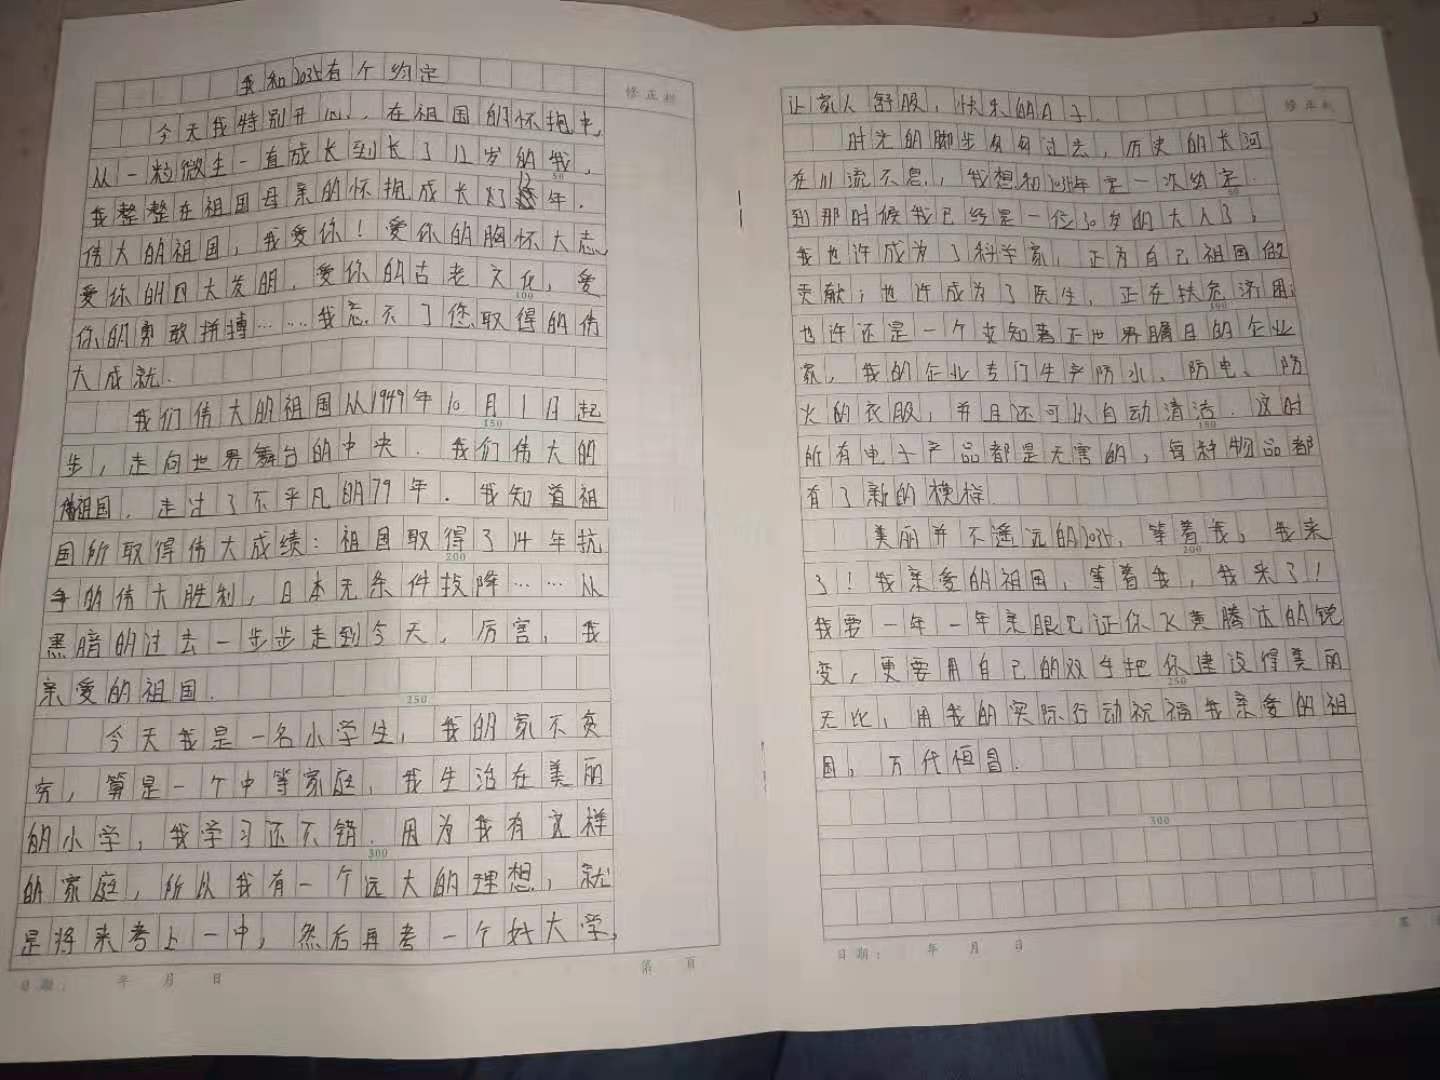 我和2035有个约定
修正栏
今天我特别开心,在祖国的怀抱中,
从一粒微生一直成长到长了12岁的我,
50
我整整在祖国母亲的怀抱成长了12年.
伟大的祖国,我爱你!爱你的胸怀大志,
爱你的四大发明,爱你的古老文化,爱
100
你的勇敢拼搏……我忘不了您取得的伟
大成就.
我们伟大的祖国从1949年10月1日起
150
步,走向世界舞台的中央.我们伟大的
祖国.走过了不平凡的79年.我知道祖
国所取得伟大成绩:祖国取得了14年抗
200
争的伟大胜利,日本无条件投降……从
黑暗的过去一步步走到今天,厉害,我
亲爱的祖国.
250
今天我是一名小学生,我的家不贫
穷,算是一个中等家庭,我生活在美丽
的小学,我学习还不错.因为我有这样
300
的家庭,所从我有一个远大的理想,就
是将来考上一中,然后再考一个好大学,
日期: 年 月 日
第 页
让家人舒服,快乐的日子.
修正栏
时光的脚步匆匆过去,历史的长河
在川流不息,我想和2035年定一次约定.
50
到那时候我已经是一位30岁的大人了,
我也许成为了科学家,正为自己祖国做
贡献;也许成为了医生,正在扶危济困;
100
也许还是一个变知著正世界瞩目的企业
家,我的企业专门生产防水、防电、防
火的衣服,并且还可从自动清洁.这时
150
所有电子产品都是无害的,每种物品都
有了新的模样.
美丽并不遥远的2035,等着我,我来
200
了!我亲爱的祖国,等着我,我来了!
我要一年一年亲眼见证你飞黄腾达的锐
变,更要用自己的双手把你建设得美丽
250
无比,用我的实际行动祝福我亲爱的祖
国,万代恒昌.
300
日期: 年 月 日
第